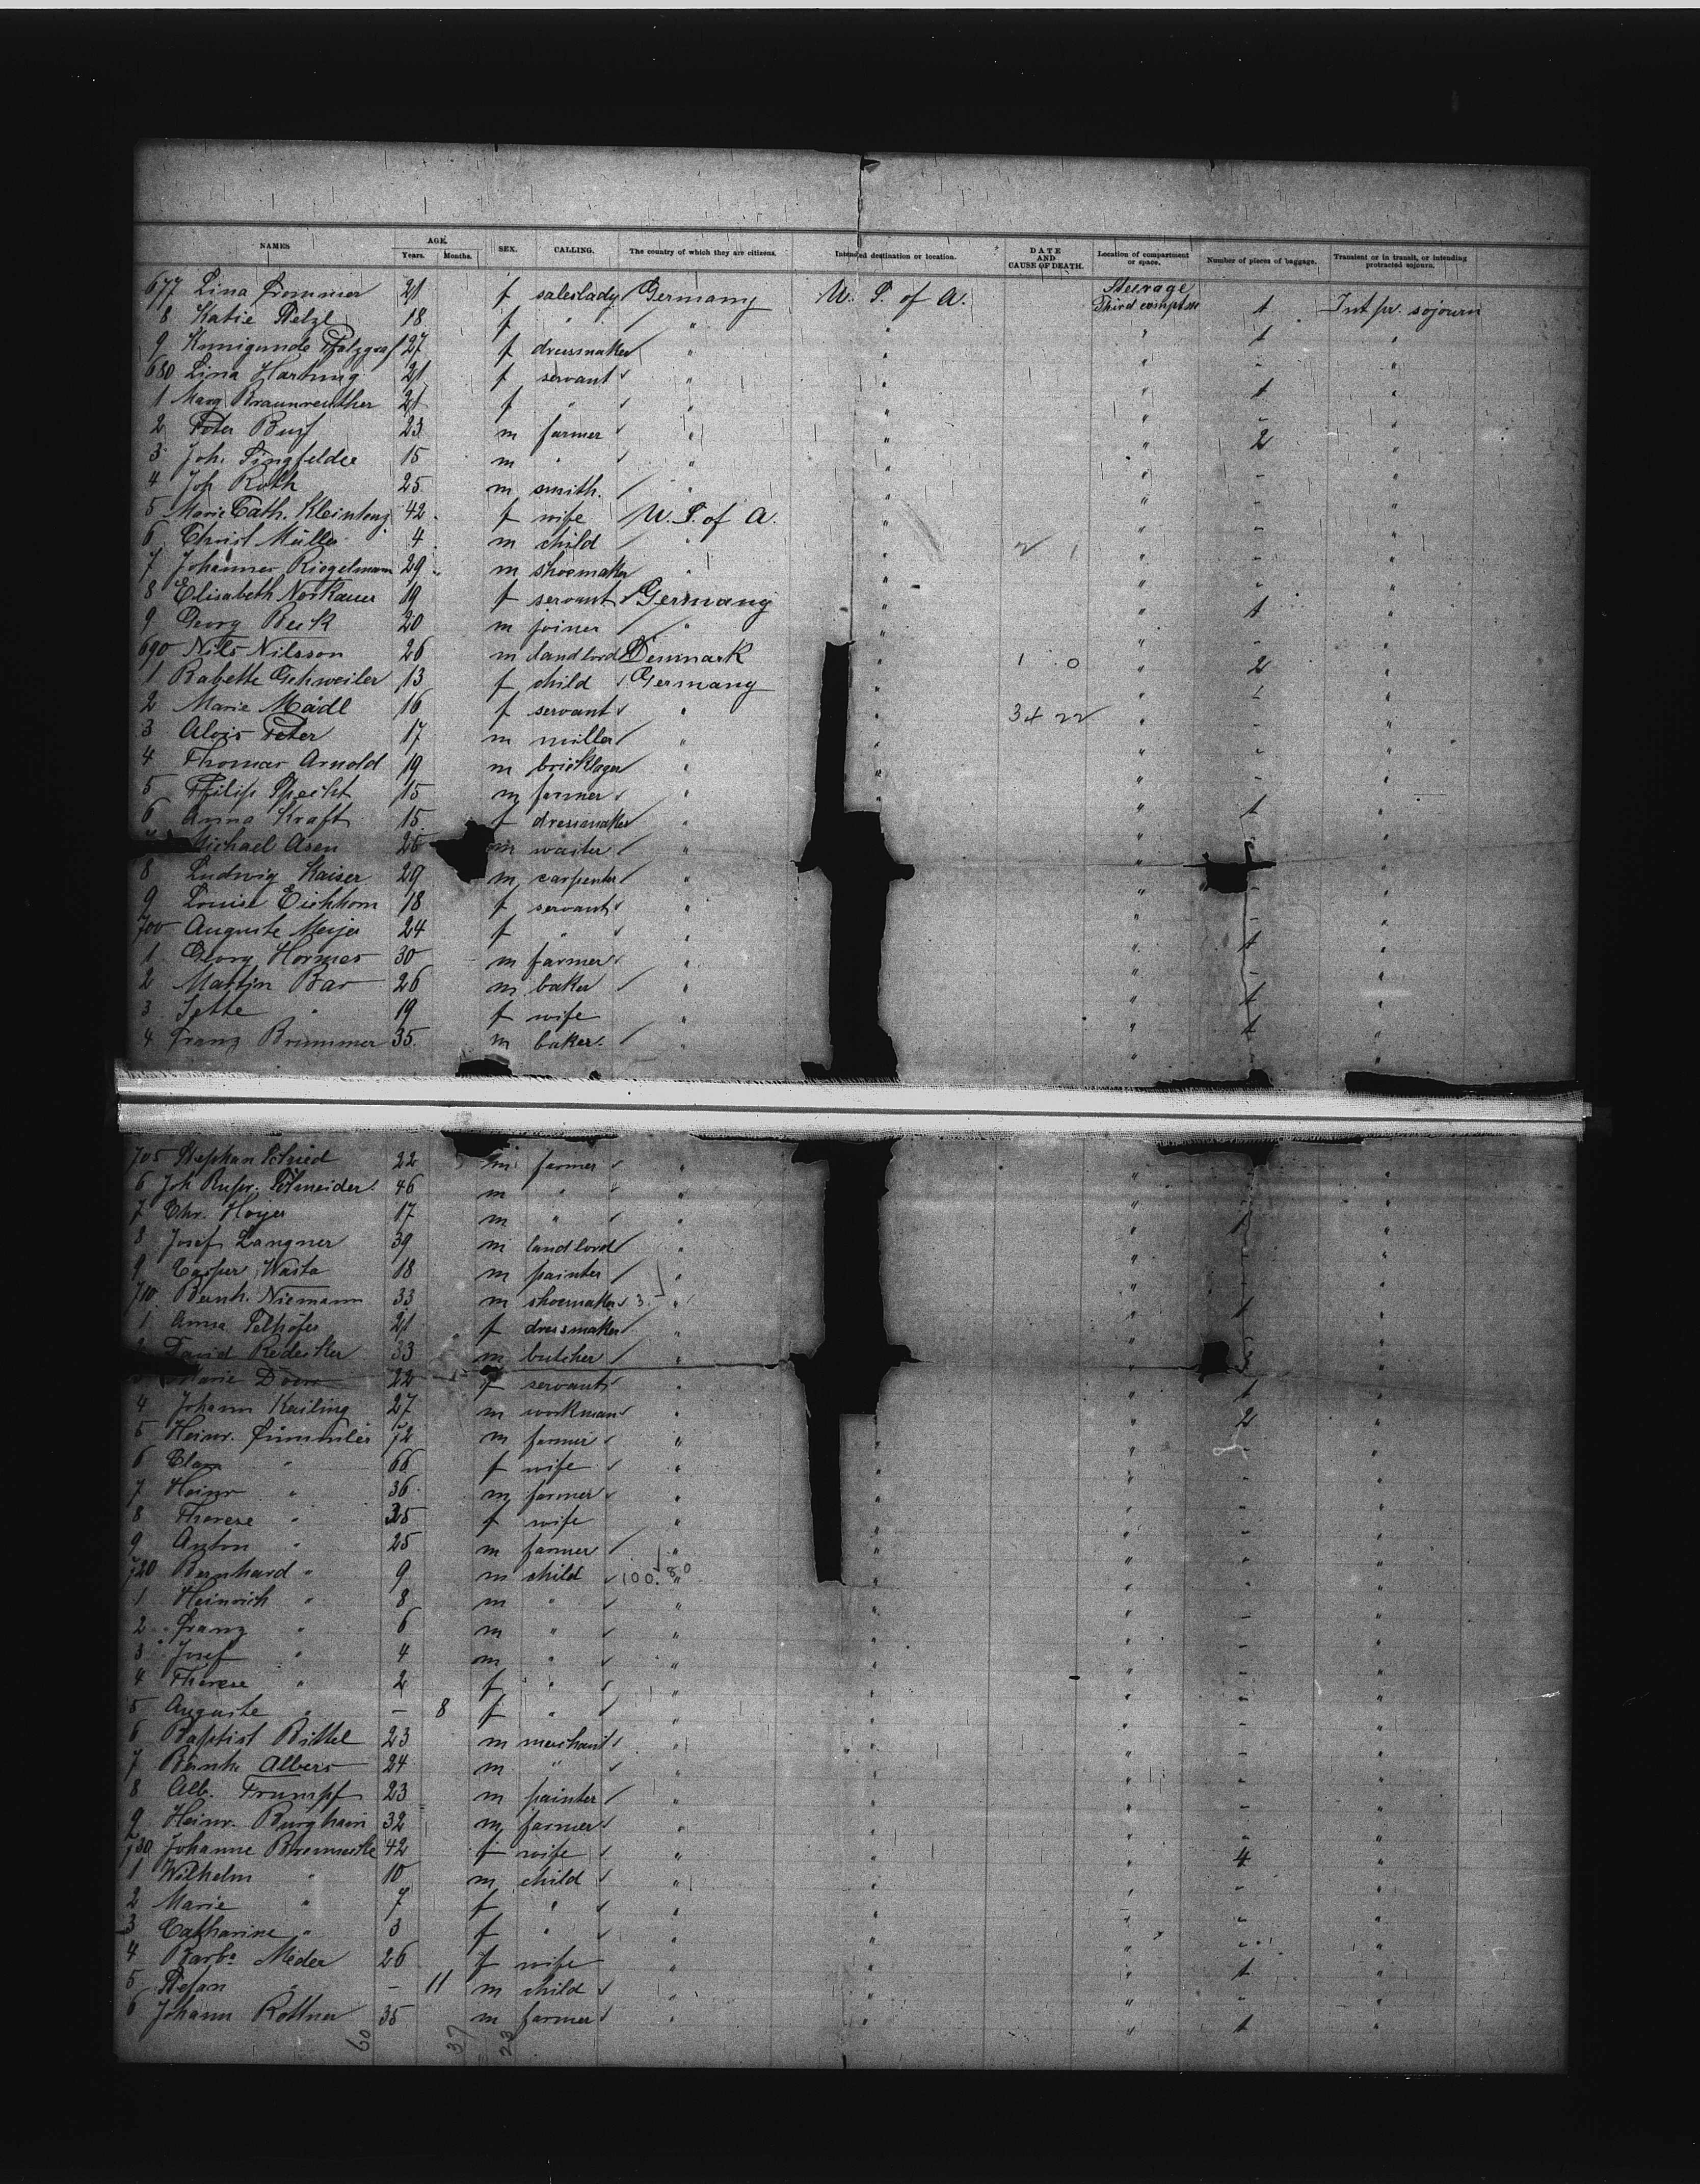 NAMES AGE. Years. Months. SEX. CALLING. The country of which they are citizens. Intended destination or location. DATE AND CAUSE OF DEATH. Location of compartment or space. Number of pieces of baggage. Transient or in transit, or intending protracted sojourn.
677 Lina Frommer 21 f saleslady Germany U. S. of A. Steerage Third comptm 1 Int pr. sojourn
8 Katie Stelzl 18 f " " " " 1 "
9 Kunigunde Pfalzgraf 27 f dressmaker " " " - "
680 Lina Hartung 21 f servant " " " 1 "
1 Marg Braunreuther 21 f " " " " - "
2 Peter 23 m farmer " " " 2 "
3 Joh. 15 m " " " " - "
4 Joh Roth 25 m smith. " " " - "
5 Marie Cath. 42 f wife U. S. of A. " " - "
6 Christ Müller 4 m child " " 2 1 " - "
7 Johannes Riegelmann 29 m shoemaker " " " - "
8 Elisabeth Norkauer 19 f servant Germany " " 1 "
9 Georg Beck 20 m joiner " " " - "
690 Nils Nilsson 26 m landlord Denmark " 1 0 " 2 "
1 Babette 13 f child Germany " " "
2 Marie Mädl 16 f servant " " 34 22 " - "
3 Alois Peter 17 m miller " " " - "
4 Thomas Arnold 19 m bricklayer " " " - "
5 Philip Specht 15 m farmer " " " 1 "
6 Anna Kraft 15 f dressmaker " " "
Michael Asen 26 m waiter " " "
8 Ludwig Kaiser 29 m carpenter " " - "
9 Louise Eichhorn 18 f servant " " - "
700 Auguste Meyer 24 f " " " 1 "
1 Georg Hormes 30 m farmer " " - "
2 Martin Bär 26 m baker " " 1 "
3 Jette " 19 f wife " " 1 "
4 Franz Brummer 35 m baker " " "
705 Stephan Schried 22 m farmer " " "
6 Joh Rupr. Schneider 46 m " " " - "
7 Chr. Hoyer 17 m " " " 1 "
8 Josef Langner 39 m landlord " " - "
9 Casper Wasta 18 m painter " " - "
710 Bernh. Niemann 33 m shoemaker 3 " " 1 "
1 Anna 21 f dressmaker " " "
David Redecker 33 m butcher " " 3 "
Marie Dorn 22 f servant " " 1 "
4 Johann Kailing 27 m workman " " 2 "
5 Heinr. 72 m farmer " " " - "
6 Clara " 66 f wife " " " - "
7 Heinr " 36 m farmer " " " - "
8 Therese " 35 f wife " " " - "
9 Anton " 25 m farmer " " " - "
720 Bernhard " 9 m child 100. 80 " " " - "
1 Heinrich " 8 m " " " " - "
2 Franz " 6 m " " " " - "
3 Josef " 4 m " " " " - "
4 Therese " 2 f " " " " - "
5 Auguste " - 8 f " " " " - "
6 Baptist Bittel 23 m merchant " " " - "
7 Bernh. Albers 24 m " " " " - "
8 Alb. Trumpf 23 m painter " " " - "
9 Heinr. Burghain 32 m farmer " " " - "
730 Johanne 42 f wife " " " 4 "
1 Wilhelm " 10 m child " " " - "
2 Marie " 7 f " " " " - "
3 Catharine " 3 f " " " " - "
4 Barba Meder 26 f wife " " " 1 "
5 Stefan " - 11 m child " " " - "
6 Johann Rottner 35 m farmer " " " 1 "
60 37 23